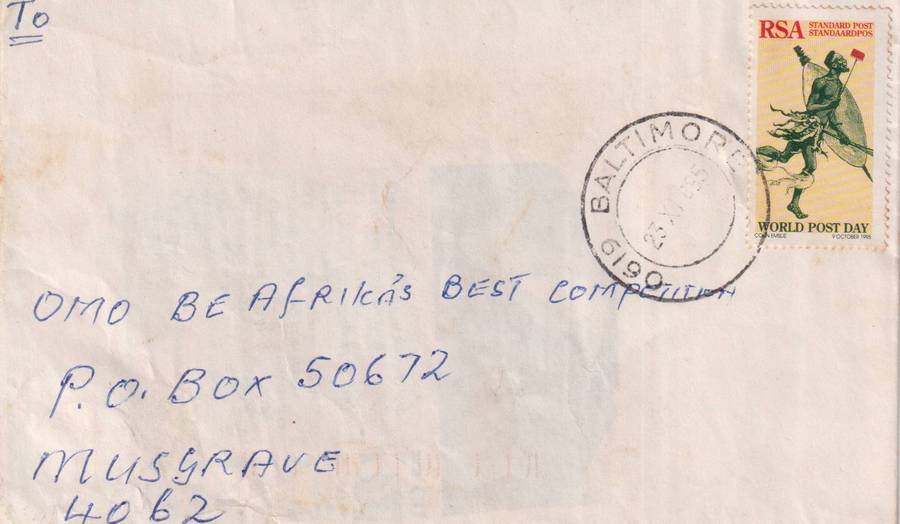 To
RSA STANDARD POST
STANDAARDPOS
WORLD POST DAY
9 OCTOBER 1995
BALTIMORE
6190
OMO BE AfRIKA'S BEST COMPETITION
P.O. BOX 50672
MUSGRAVE
4062